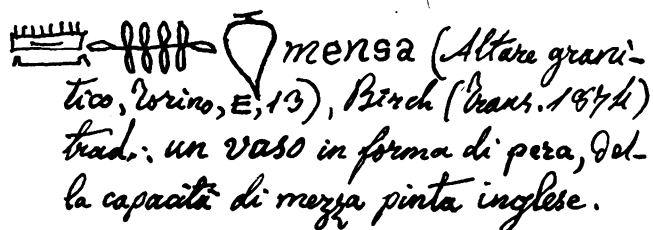 𓏠𓆱𓏌 mensa (Altare grani-
tico, Torino, E, 13), Birch (Trans. 1874)
trad.: un vaso in forma di pera, del-
la capacità di mezza pinta inglese.